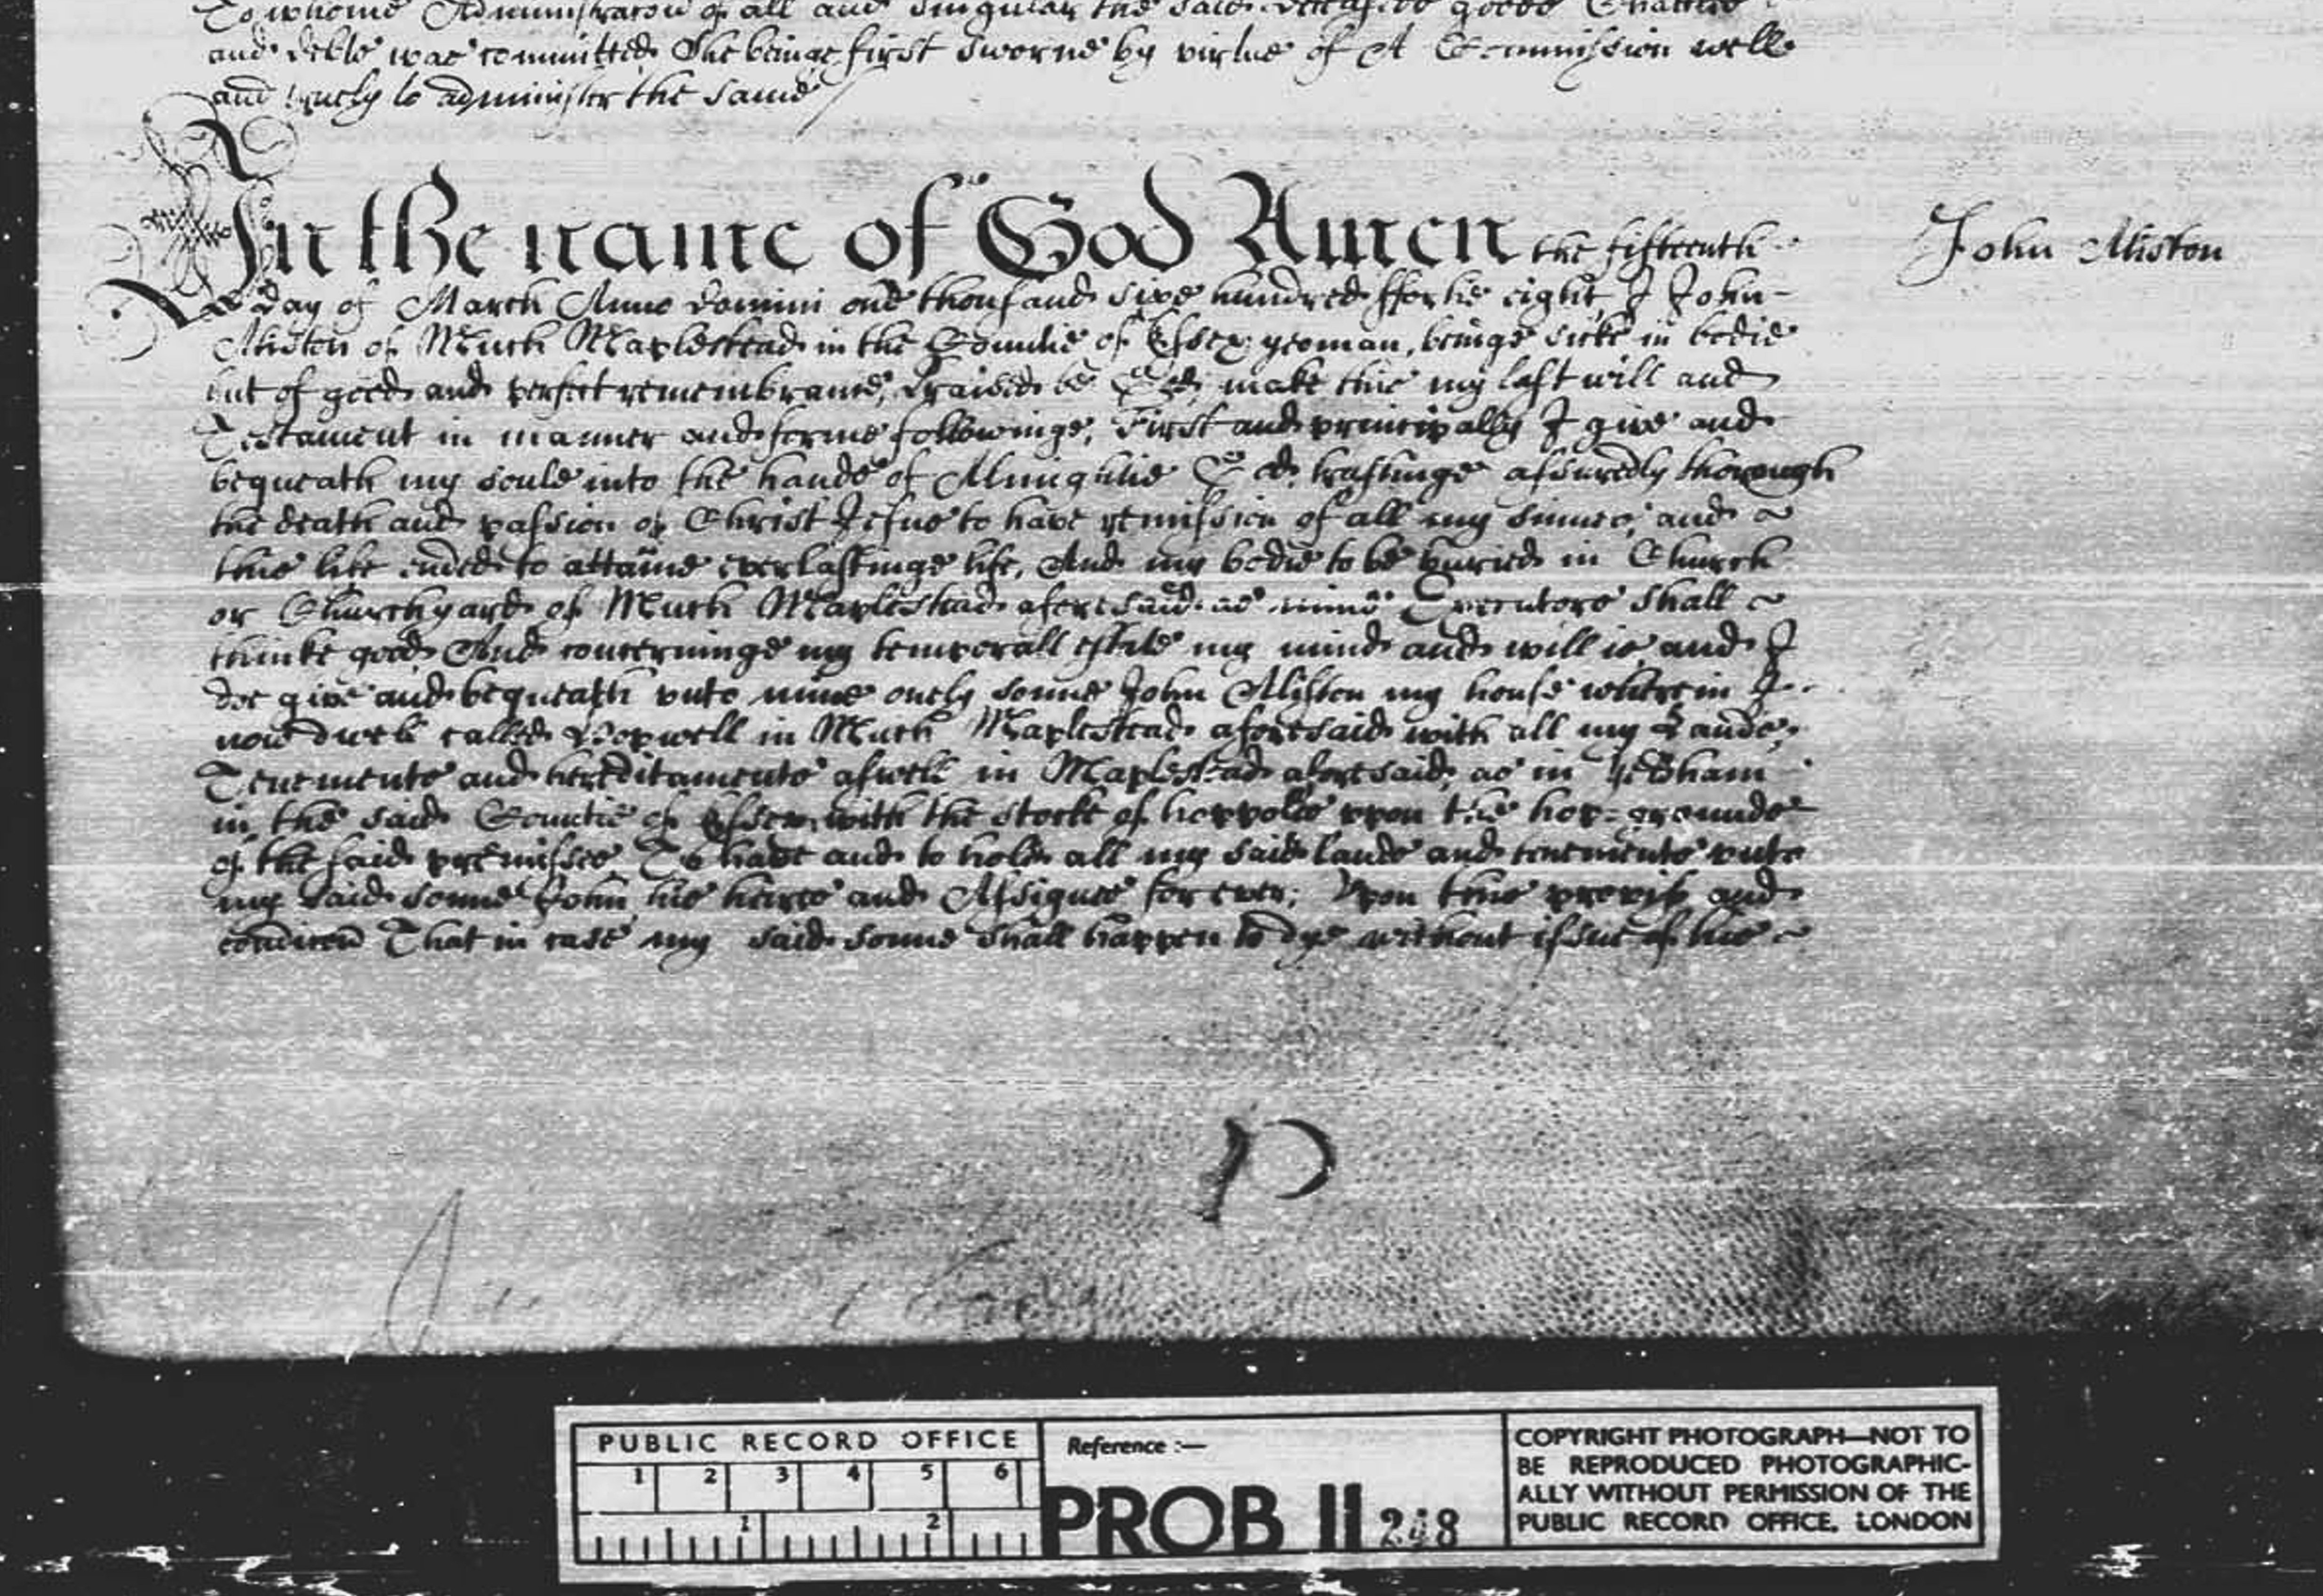 To whome Administracon of all and singular the said deceaseds goods Chattles
and debts was committed She beinge first sworne by virtue of A Commission well
and truely to administer the same
In the name of God Amen the fifteenth
John Aliston
Day of March Anno Domini one thousand sixe hundred ffortie eight, I John
Aliston of Much Maplestead in the Countie of Essex yeoman, beinge sicke in bodie
but of good and perfect remembrance, Praised be God, make this my last will and
Testament in manner and forme followinge, First and principally I give and
bequeath my soule into the hands of Almightie God, trustinge assuredly thorough
the death and passion of Christ Jesus to have remission of all my sinnes, and
this life ended to attaine everlastinge life, And my bodie to be buried in Church
or Churchyard of Much Maplestead aforesaid as mine Executors shall
thinke good And concerninge my temporall estate my mind and will is, and I
doe give and bequeath unto mine onely sonne John Aliston my house wherein I
now dwell called in Much Maplestead aforesaid with all my Lands,
Tenements and hereditaments aswell in Maplestead aforesaid, as in
in the said Countie of Essex, with the stocke of hoppoles upon the hop-grounds
of the said premisses To have and to hold all my said lands and tenements unto
my said sonne John his heires and Assignes for ever; Upon this and
condicon That in case my said sonne shall happen to dye without issue of his
PUBLIC RECORD OFFICE
1 2 3 4 5 6
1 2
Reference :—
PROB 11 248
COPYRIGHT PHOTOGRAPH—NOT TO
BE REPRODUCED PHOTOGRAPHIC-
ALLY WITHOUT PERMISSION OF THE
PUBLIC RECORD OFFICE, LONDON